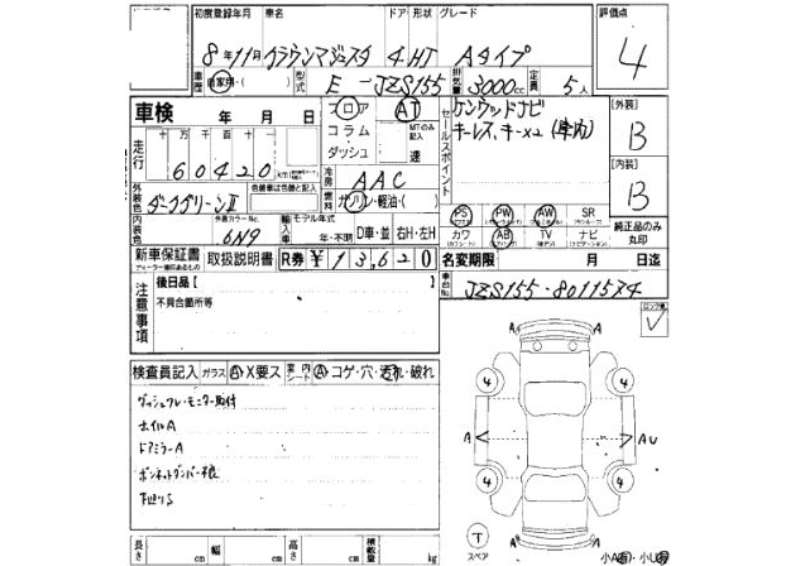 初度登録年月 車名 ドア 形状 グレード 評価点
8年11月 クラウンマジェスタ 4 HT Aタイプ 4
車歴 自家用・( ) 型式 E-JZS155 排気量 3000cc 定員 5人
車検 年 月 日 フロア AT セールスポイント ケンウッドナビ [外装]
コラム MTのみ記入 キーレス、キー×2 (車内) B
走行 十 万 千 百 十 一 ダッシュ 速
60420 km 冷房 AAC [内装]
外装色 ダークグリーンII 色替車は色替と記入 燃料 ガソリン・軽油・( ) B
内装色 外装カラーNo. 6N9 輸入車 モデル年式 PS PW AW SR 純正品のみ丸印
年・不明 D車・並 右H・左H カワ AB TV ナビ
新車保証書 取扱説明書 R券 ¥13,620 名変期限 月 日迄
ディーラー捺印あるもの
注意事項 後日品 [ ] 車台No. JZS155-8011574
不具合箇所等
検査員記入 ガラス A X要ス 室内シート A コゲ・穴・汚れ・破れ
ダッシュワレ・モニター取付
ホイルA
ドアミラーA
ボンネットダンパー不良
下廻りS
A A
4 4
A AU
4 4
T
スペア A A
小A・小U
長さ cm 幅 cm 高さ cm 積載量 kg